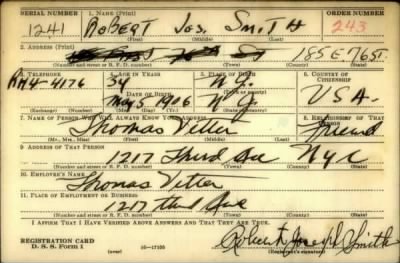 SERIAL NUMBER 1. NAME (Print) ORDER NUMBER
1241 ROBERT Jos. SMITH 243
(First) (Middle) (Last)
2. ADDRESS (Print)
185 E. 76 ST.
(Number and street or R. F. D. number) (Town) (County) (State)
3. TELEPHONE 4. AGE IN YEARS 5. PLACE OF BIRTH 6. COUNTRY OF CITIZENSHIP
RH4-4176 34 N.Y.
DATE OF BIRTH
May 5 1906 N.Y. USA.
(Exchange) (Number) (Mo.) (Day) (Yr.) (State or country)
7. NAME OF PERSON WHO WILL ALWAYS KNOW YOUR ADDRESS 8. RELATIONSHIP OF THAT PERSON
Thomas Vitter Friend
(Mr., Mrs., Miss) (First) (Middle) (Last)
9. ADDRESS OF THAT PERSON
1217 Third Ave NYC
(Number and street or R. F. D. number) (Town) (County) (State)
10. EMPLOYER'S NAME
Thomas Vitter
11. PLACE OF EMPLOYMENT OR BUSINESS
1217 third Ave
(Number and street or R. F. D. number) (Town) (County) (State)
I AFFIRM THAT I HAVE VERIFIED ABOVE ANSWERS AND THAT THEY ARE TRUE.
REGISTRATION CARD
D. S. S. Form 1 (over) 16—17105 Robert Joseph Smith
(Registrant's signature)